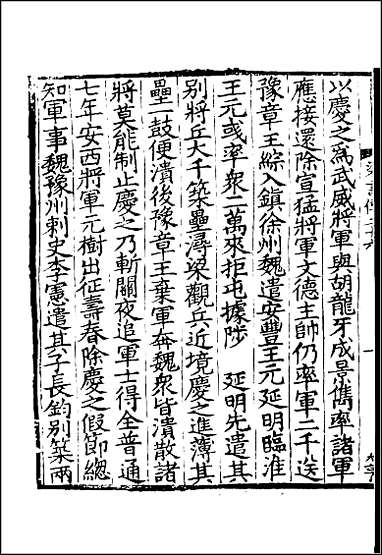 以慶之爲武威將軍與胡龍牙成景儁率諸軍
應接還除宣猛將軍文德主帥仍率軍二千送
豫章王綜入鎮徐州魏遣安豐王元延明臨淮
王元彧率衆二萬來拒屯據陟 延明先遣其
別將丘大千築壘潯梁觀兵近境慶之進薄其
壘一鼓便潰後豫章王棄軍奔魏衆皆潰散諸
將莫能制止慶之乃斬關夜追軍士得全普通
七年安西將軍元樹出征壽春除慶之假節總
知軍事魏豫州刺史李憲遣其子長鈞別築兩
梁書傳二十六
一